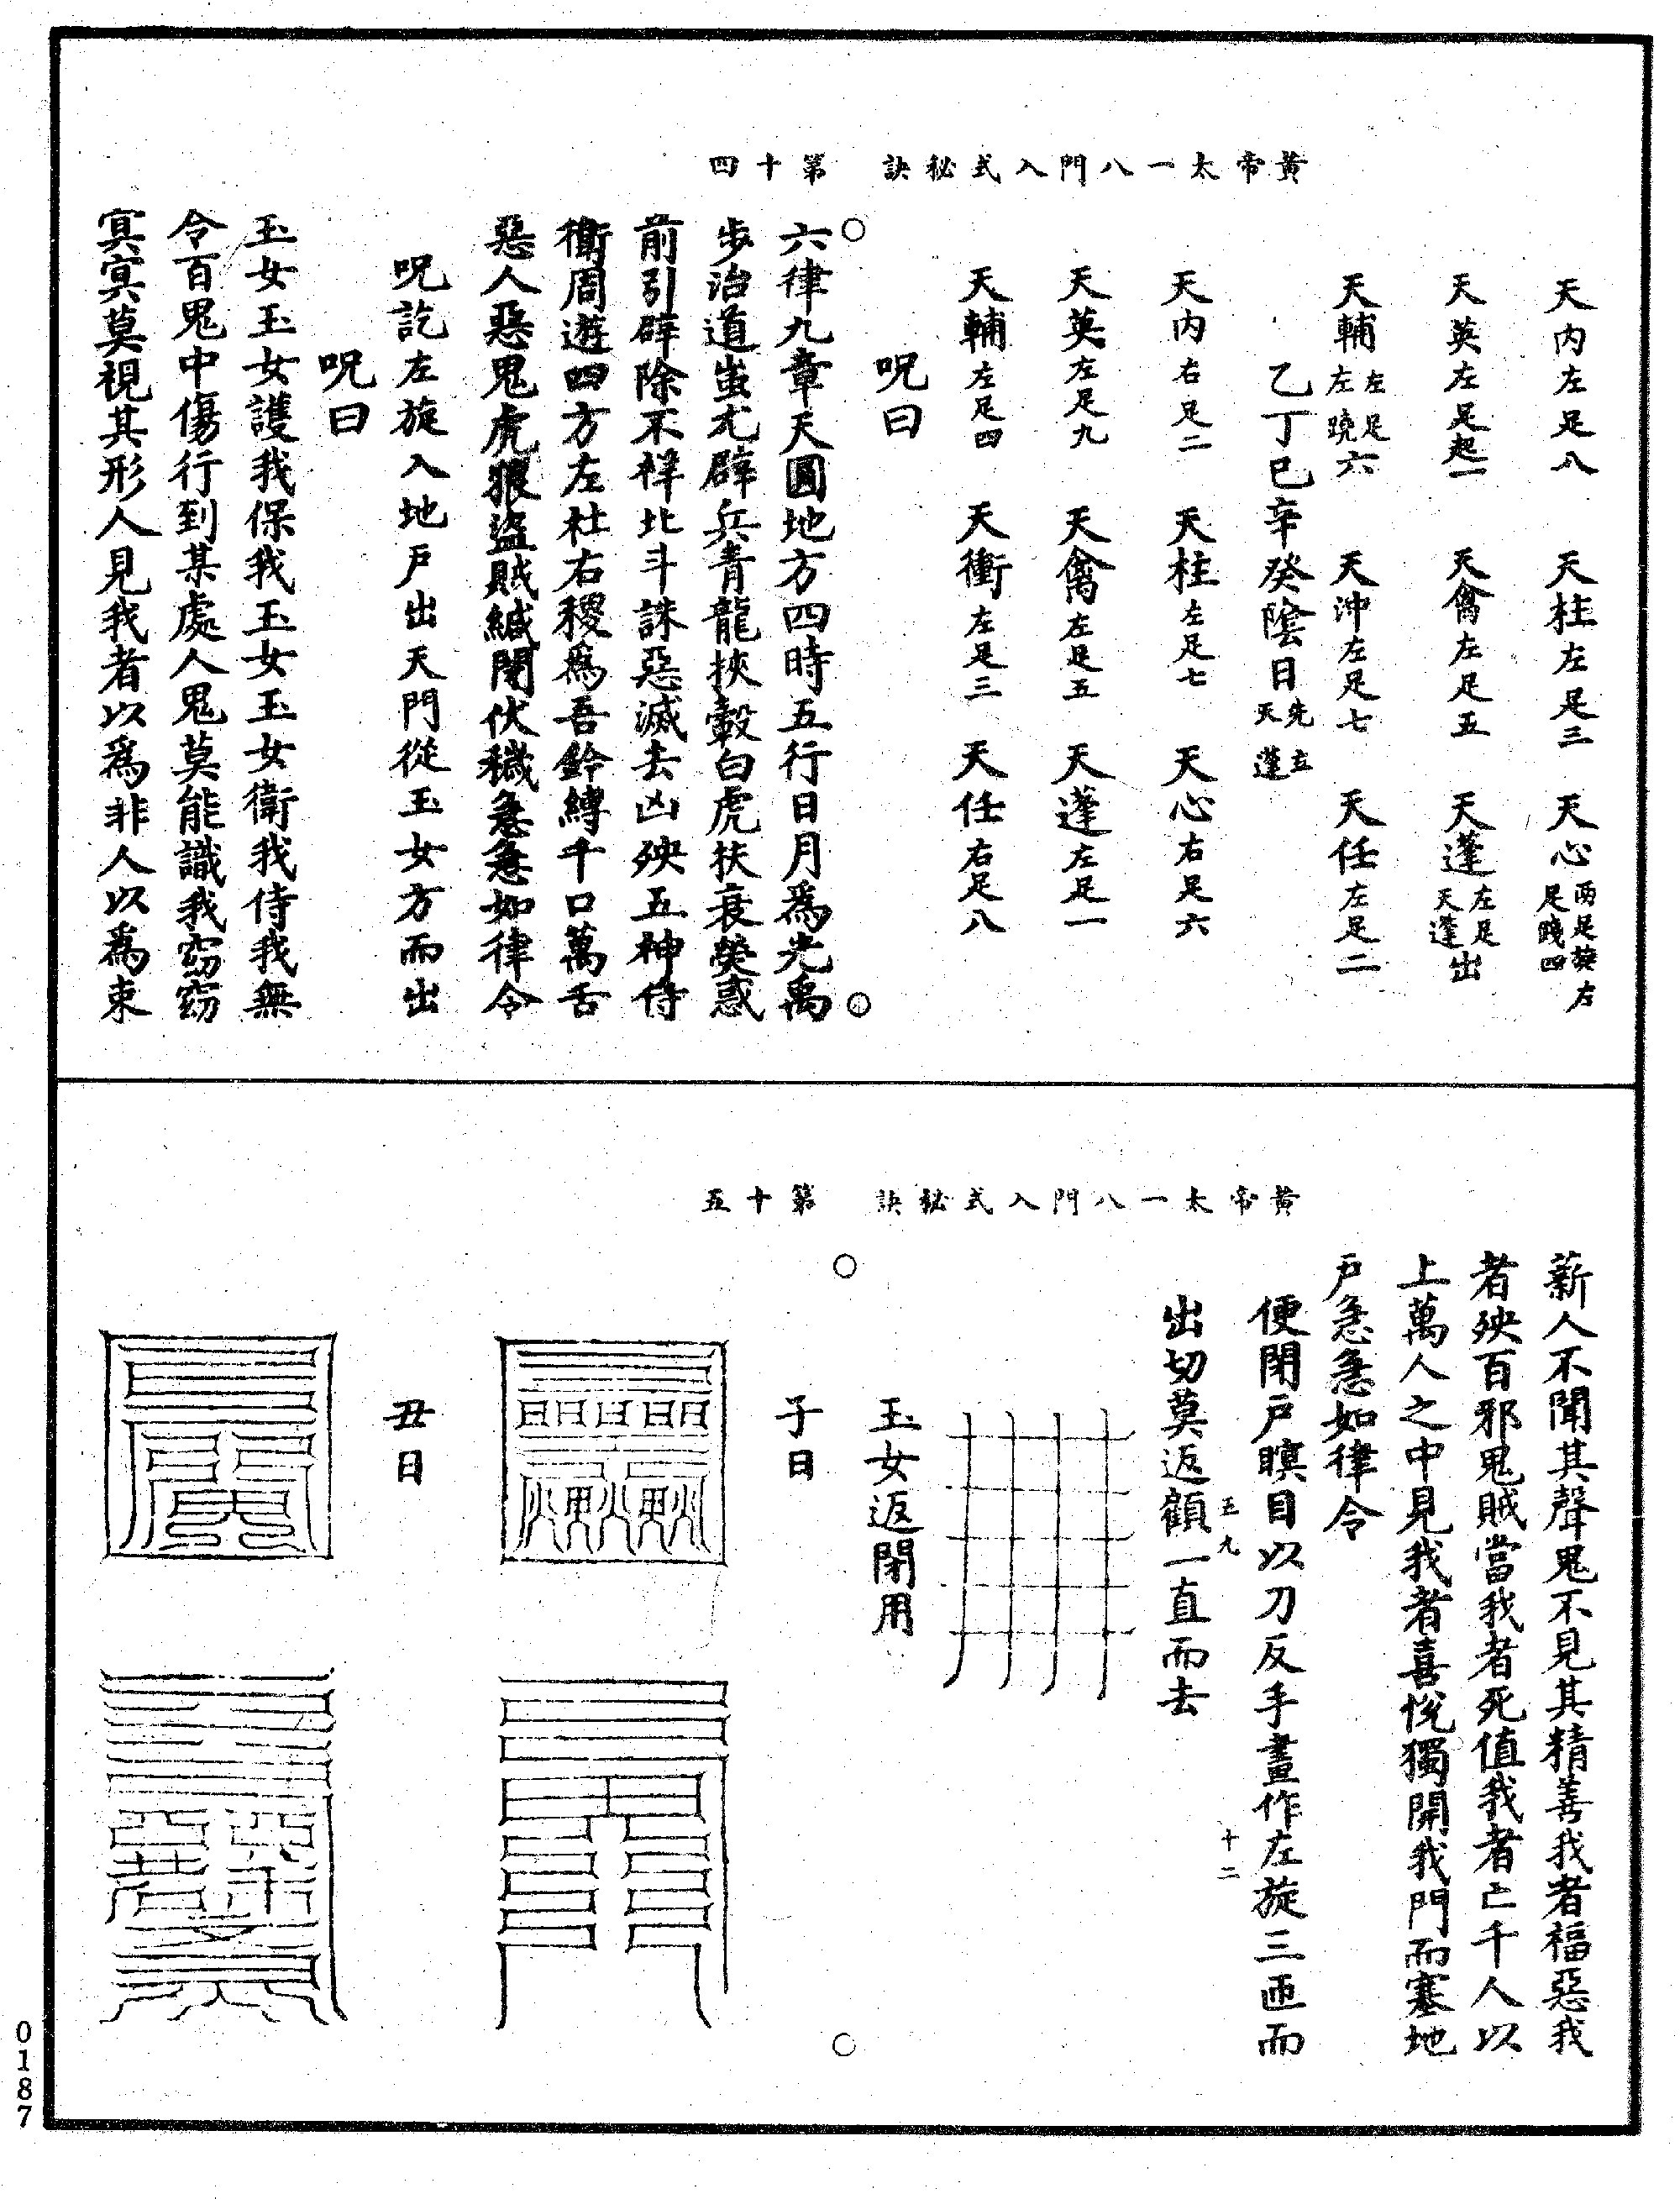 黃帝太一八門入式秘訣　第十四
天內左足八　天柱左足三　天心兩足旋左足踐四
天英左足起一　天禽左足五　天蓬左足天蓬出
天輔左足左蹺六　天沖左足七　天任左足二
乙丁巳辛癸陰日先立天蓬
天內右足二　天柱左足七　天心右足六
天英左足九　天禽左足五　天蓬左足一
天輔左足四　天衝左足三　天任右足八
呪曰
六律九章天圓地方四時五行日月爲光禹
步治道蚩尤辟兵青龍挾轂白虎扶衰熒惑
前引辟除不祥北斗誅惡滅去凶殃五神侍
衛周遊四方左社右稷爲吾鈴縛千口萬舌
惡人惡鬼虎狼盜賊緘閉伏穢急急如律令
呪訖左旋入地戶出天門從玉女方而出
呪曰
玉女玉女護我保我玉女玉女衛我侍我無
令百鬼中傷行到某處人鬼莫能識我窈窈
冥冥莫視其形人見我者以爲非人以爲束
黃帝太一八門入式秘訣　第十五
薪人不聞其聲鬼不見其精善我者福惡我
者殃百邪鬼賊當我者死值我者亡千人以
上萬人之中見我者喜悅獨開我門而塞地
戶急急如律令
便閉戶瞑目以刀反手畫作左旋三匝而
五九　十二
出切莫返顧一直而去
玉女返閉用
子日
丑日
0187